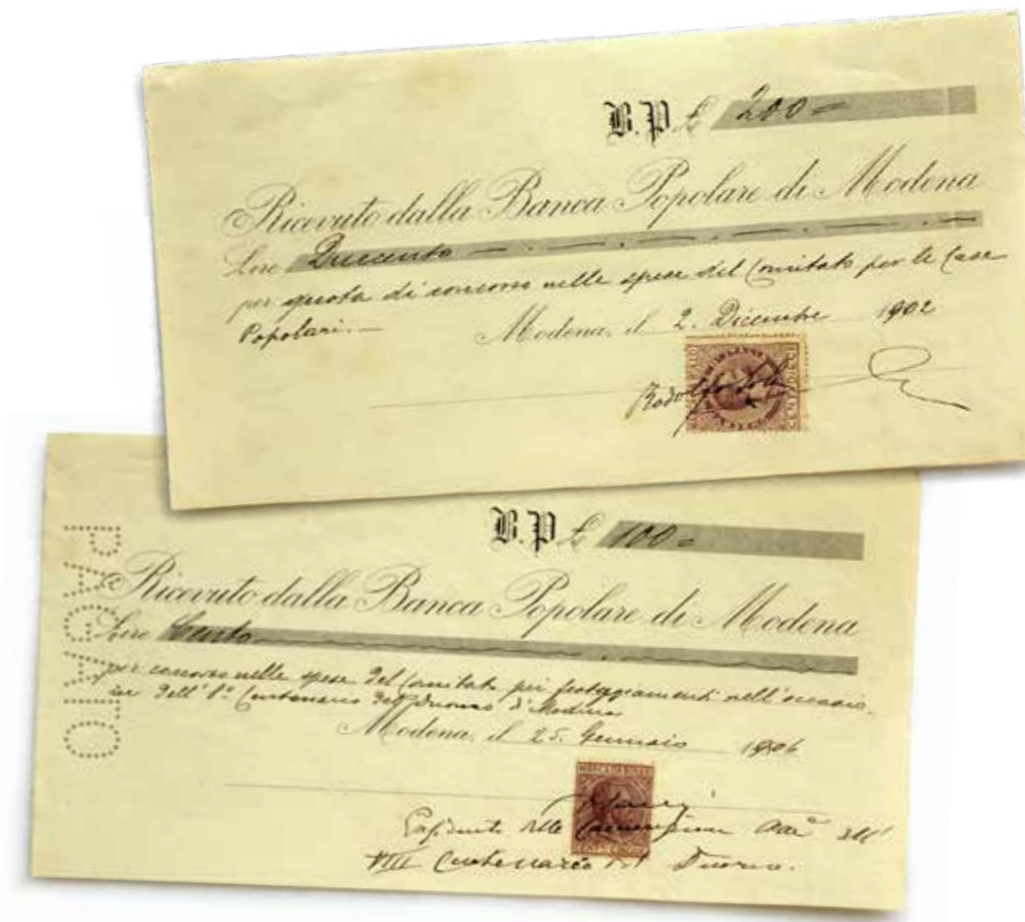 B.P. £ 200=
Ricevuto dalla Banca Popolare di Modena
Lire Duecento
per quota di concorso nelle spese del Comitato per le Case
Popolari.—
Modena, il 2. Dicembre 1902
Rodolfo
B.P. £ 100=
Ricevuto dalla Banca Popolare di Modena
Lire Cento
per concorso nelle spese del Comitato pei festeggiamenti nell'occasio-
ne dell'8º Centenario del Duomo di Modena
Modena, il 25. Gennaio 1906
della Commissione dell'
VIII Centenario del Duomo.
PAGATO